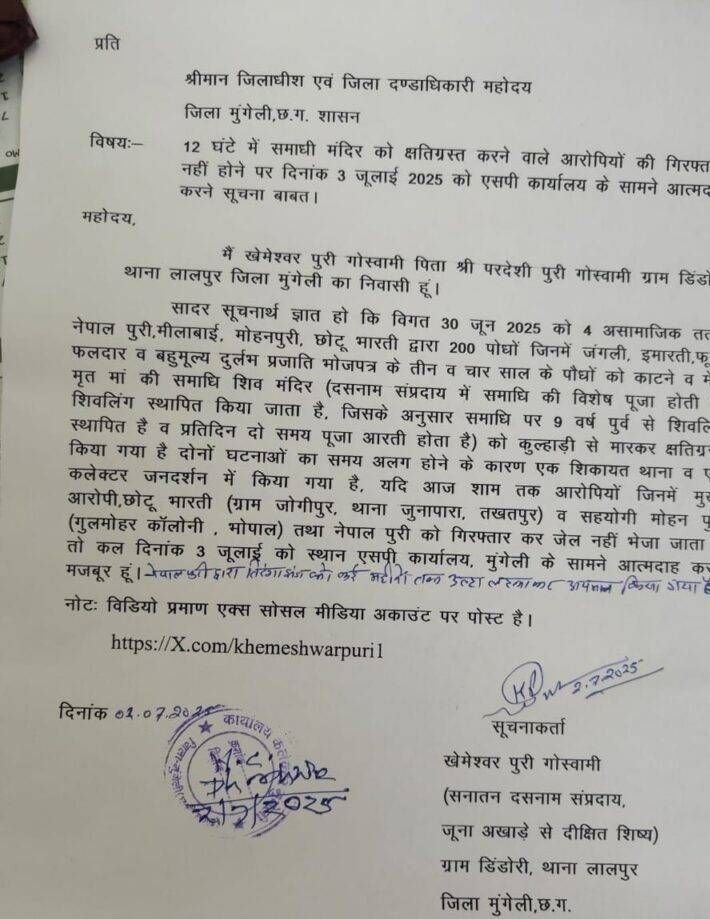 प्रति
श्रीमान जिलाधीश एवं जिला दण्डाधिकारी महोदय
जिला मुंगेली,छ.ग. शासन
विषयः– 12 घंटे में समाधी मंदिर को क्षतिग्रस्त करने वाले आरोपियों की गिरफ्त
नहीं होने पर दिनांक 3 जूलाई 2025 को एसपी कार्यालय के सामने आत्मद
करने सूचना बाबत।
महोदय,
मैं खेमेश्वर पुरी गोस्वामी पिता श्री परदेशी पुरी गोस्वामी ग्राम डिंडो
थाना लालपुर जिला मुंगेली का निवासी हूं।
सादर सूचनार्थ ज्ञात हो कि विगत 30 जून 2025 को 4 असामाजिक तत
नेपाल पुरी,मीलाबाई, मोहनपुरी, छोटू भारती द्वारा 200 पोधों जिनमें जंगली, इमारती,फू
फलदार व बहुमूल्य दुर्लभ प्रजाति भोजपत्र के तीन व चार साल के पौधों को काटने व मे
मृत मां की समाधि शिव मंदिर (दसनाम संप्रदाय में समाधि की विशेष पूजा होती
शिवलिंग स्थापित किया जाता है, जिसके अनुसार समाधि पर 9 वर्ष पुर्व से शिवलि
स्थापित है व प्रतिदिन दो समय पूजा आरती होता है) को कुल्हाड़ी से मारकर क्षतिग्र
किया गया है दोनों घटनाओं का समय अलग होने के कारण एक शिकायत थाना व ए
कलेक्टर जनदर्शन में किया गया है, यदि आज शाम तक आरोपियों जिनमें मु
आरोपी,छोटू भारती (ग्राम जोगीपुर, थाना जुनापारा, तखतपुर) व सहयोगी मोहन पु
(गुलमोहर कॉलोनी , भोपाल) तथा नेपाल पुरी को गिरफ्तार कर जेल नहीं भेजा जाता
तो कल दिनांक 3 जूलाई को स्थान एसपी कार्यालय, मुंगेली के सामने आत्मदाह कर
मजबूर हूं। नेपाल पुरी द्वारा तिरंगा झंडा को कई महीनों तक उल्टा लटकाकर अपमान किया गया है
नोटः विडियो प्रमाण एक्स सोसल मीडिया अकाउंट पर पोस्ट है।
https://X.com/khemeshwarpuri1
2.7.2025
दिनांक 02.07.2025
कार्यालय
2/7/2025
सूचनाकर्ता
खेमेश्वर पुरी गोस्वामी
(सनातन दसनाम संप्रदाय,
जूना अखाड़े से दीक्षित शिष्य)
ग्राम डिंडोरी, थाना लालपुर
जिला मुंगेली,छ.ग.